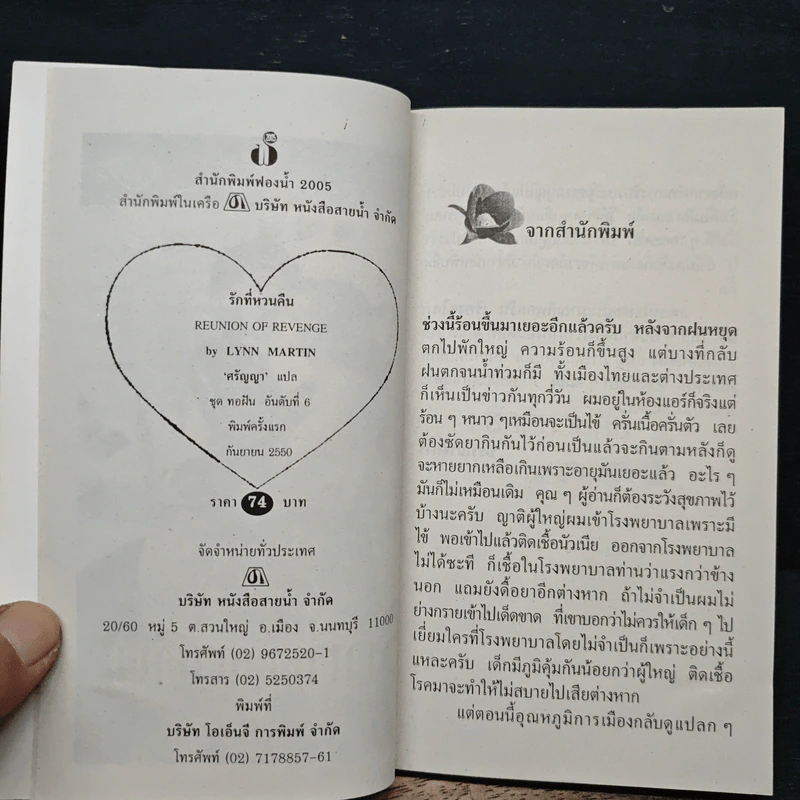 สำนักพิมพ์ฟองน้ำ 2005
สำนักพิมพ์ในเครือ บริษัท หนังสือสายน้ำ จำกัด
รักที่หวนคืน
REUNION OF REVENGE
by LYNN MARTIN
'ศรัญญา' แปล
ชุด ทอฝัน อันดับที่ 6
พิมพ์ครั้งแรก
กันยายน 2550
ราคา 74 บาท
จัดจำหน่ายทั่วประเทศ
บริษัท หนังสือสายน้ำ จำกัด
20/60 หมู่ 5 ต.สวนใหญ่ อ.เมือง จ.นนทบุรี 11000
โทรศัพท์ (02) 9672520-1
โทรสาร (02) 5250374
พิมพ์ที่
บริษัท โอเอ็นจี การพิมพ์ จำกัด
โทรศัพท์ (02) 7178857-61
จากสำนักพิมพ์
ช่วงนี้ร้อนขึ้นมาเยอะอีกแล้วครับ หลังจากฝนหยุด
ตกไปพักใหญ่ ความร้อนก็ขึ้นสูง แต่บางที่กลับ
ฝนตกจนน้ำท่วมก็มี ทั้งเมืองไทยและต่างประเทศ
ก็เห็นเป็นข่าวกันทุกวี่วัน ผมอยู่ในห้องแอร์ก็จริงแต่
ร้อน ๆ หนาว ๆเหมือนจะเป็นไข้ ครั่นเนื้อครั่นตัว เลย
ต้องซัดยากินกันไว้ก่อนเป็นแล้วจะกินตามหลังก็ดู
จะหายยากเหลือเกินเพราะอายุมันเยอะแล้ว อะไร ๆ
มันก็ไม่เหมือนเดิม คุณ ๆ ผู้อ่านก็ต้องระวังสุขภาพไว้
บ้างนะครับ ญาติผู้ใหญ่ผมเข้าโรงพยาบาลเพราะมี
ไข้ พอเข้าไปแล้วติดเชื้อนัวเนีย ออกจากโรงพยาบาล
ไม่ได้ซะที ก็เชื้อในโรงพยาบาลท่านว่าแรงกว่าข้าง
นอก แถมยังดื้อยาอีกต่างหาก ถ้าไม่จำเป็นผมไม่
ย่างกรายเข้าไปเด็ดขาด ที่เขาบอกว่าไม่ควรให้เด็ก ๆ ไป
เยี่ยมใครที่โรงพยาบาลโดยไม่จำเป็นก็เพราะอย่างนี้
แหละครับ เด็กมีภูมิคุ้มกันน้อยกว่าผู้ใหญ่ ติดเชื้อ
โรคมาจะทำให้ไม่สบายไปเสียต่างหาก
แต่ตอนนี้อุณหภูมิการเมืองกลับดูแปลก ๆ